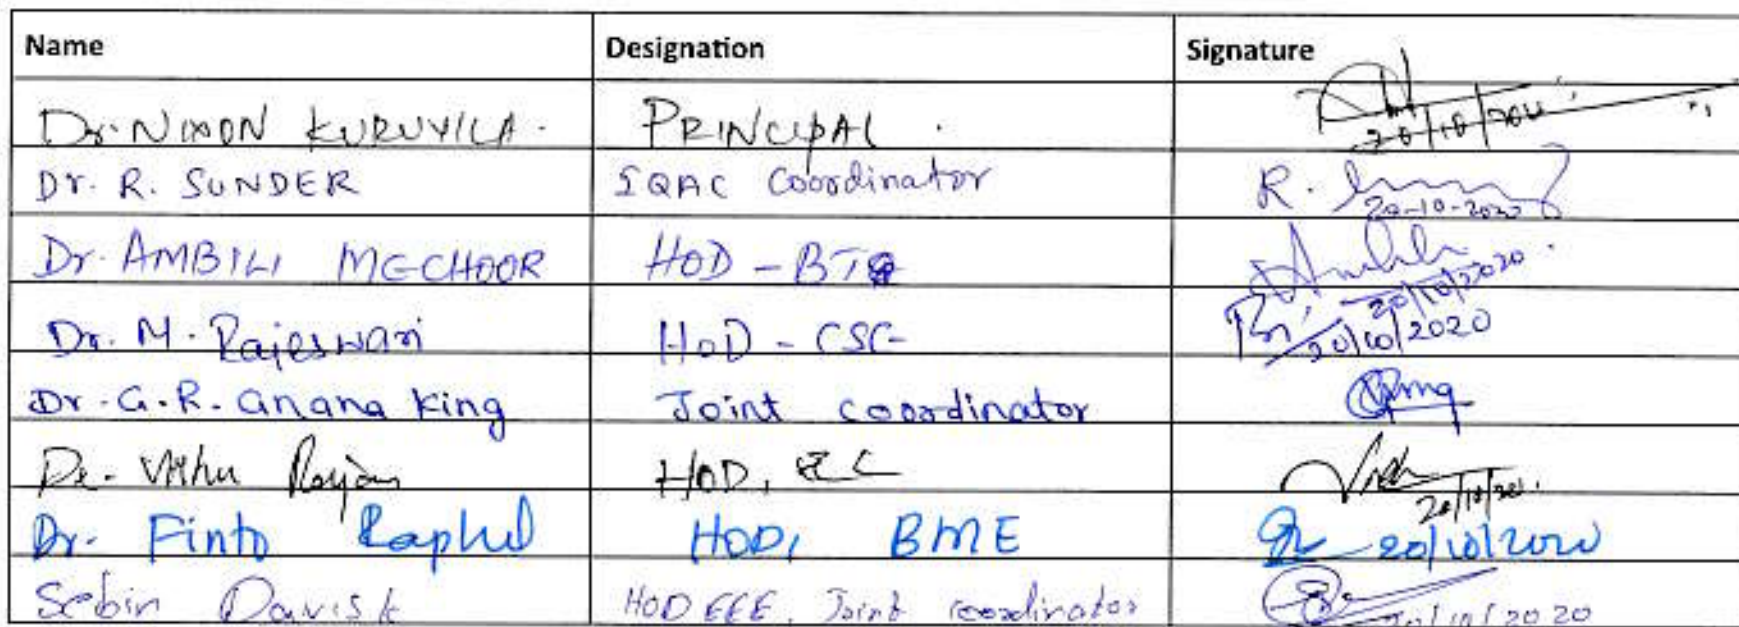 Name Designation Signature
Dr. NIXON KURUVILA. PRINCIPAL. 20/10/2020
Dr. R. SUNDER IQAC Coordinator R. 20-10-2020
Dr. AMBILI MECHOOR HOD - BT 20/10/2020
Dr. M. Rajeswari HoD - CSE 20/10/2020
Dr. G.R. gnana king Joint coordinator
Dr. Vithu Rajan HOD, EC 20/10/20
Dr. Finto Raphel HOD, BME 20/10/2020
Sebin Davis k HOD EEE, Joint coordinator 20/10/2020